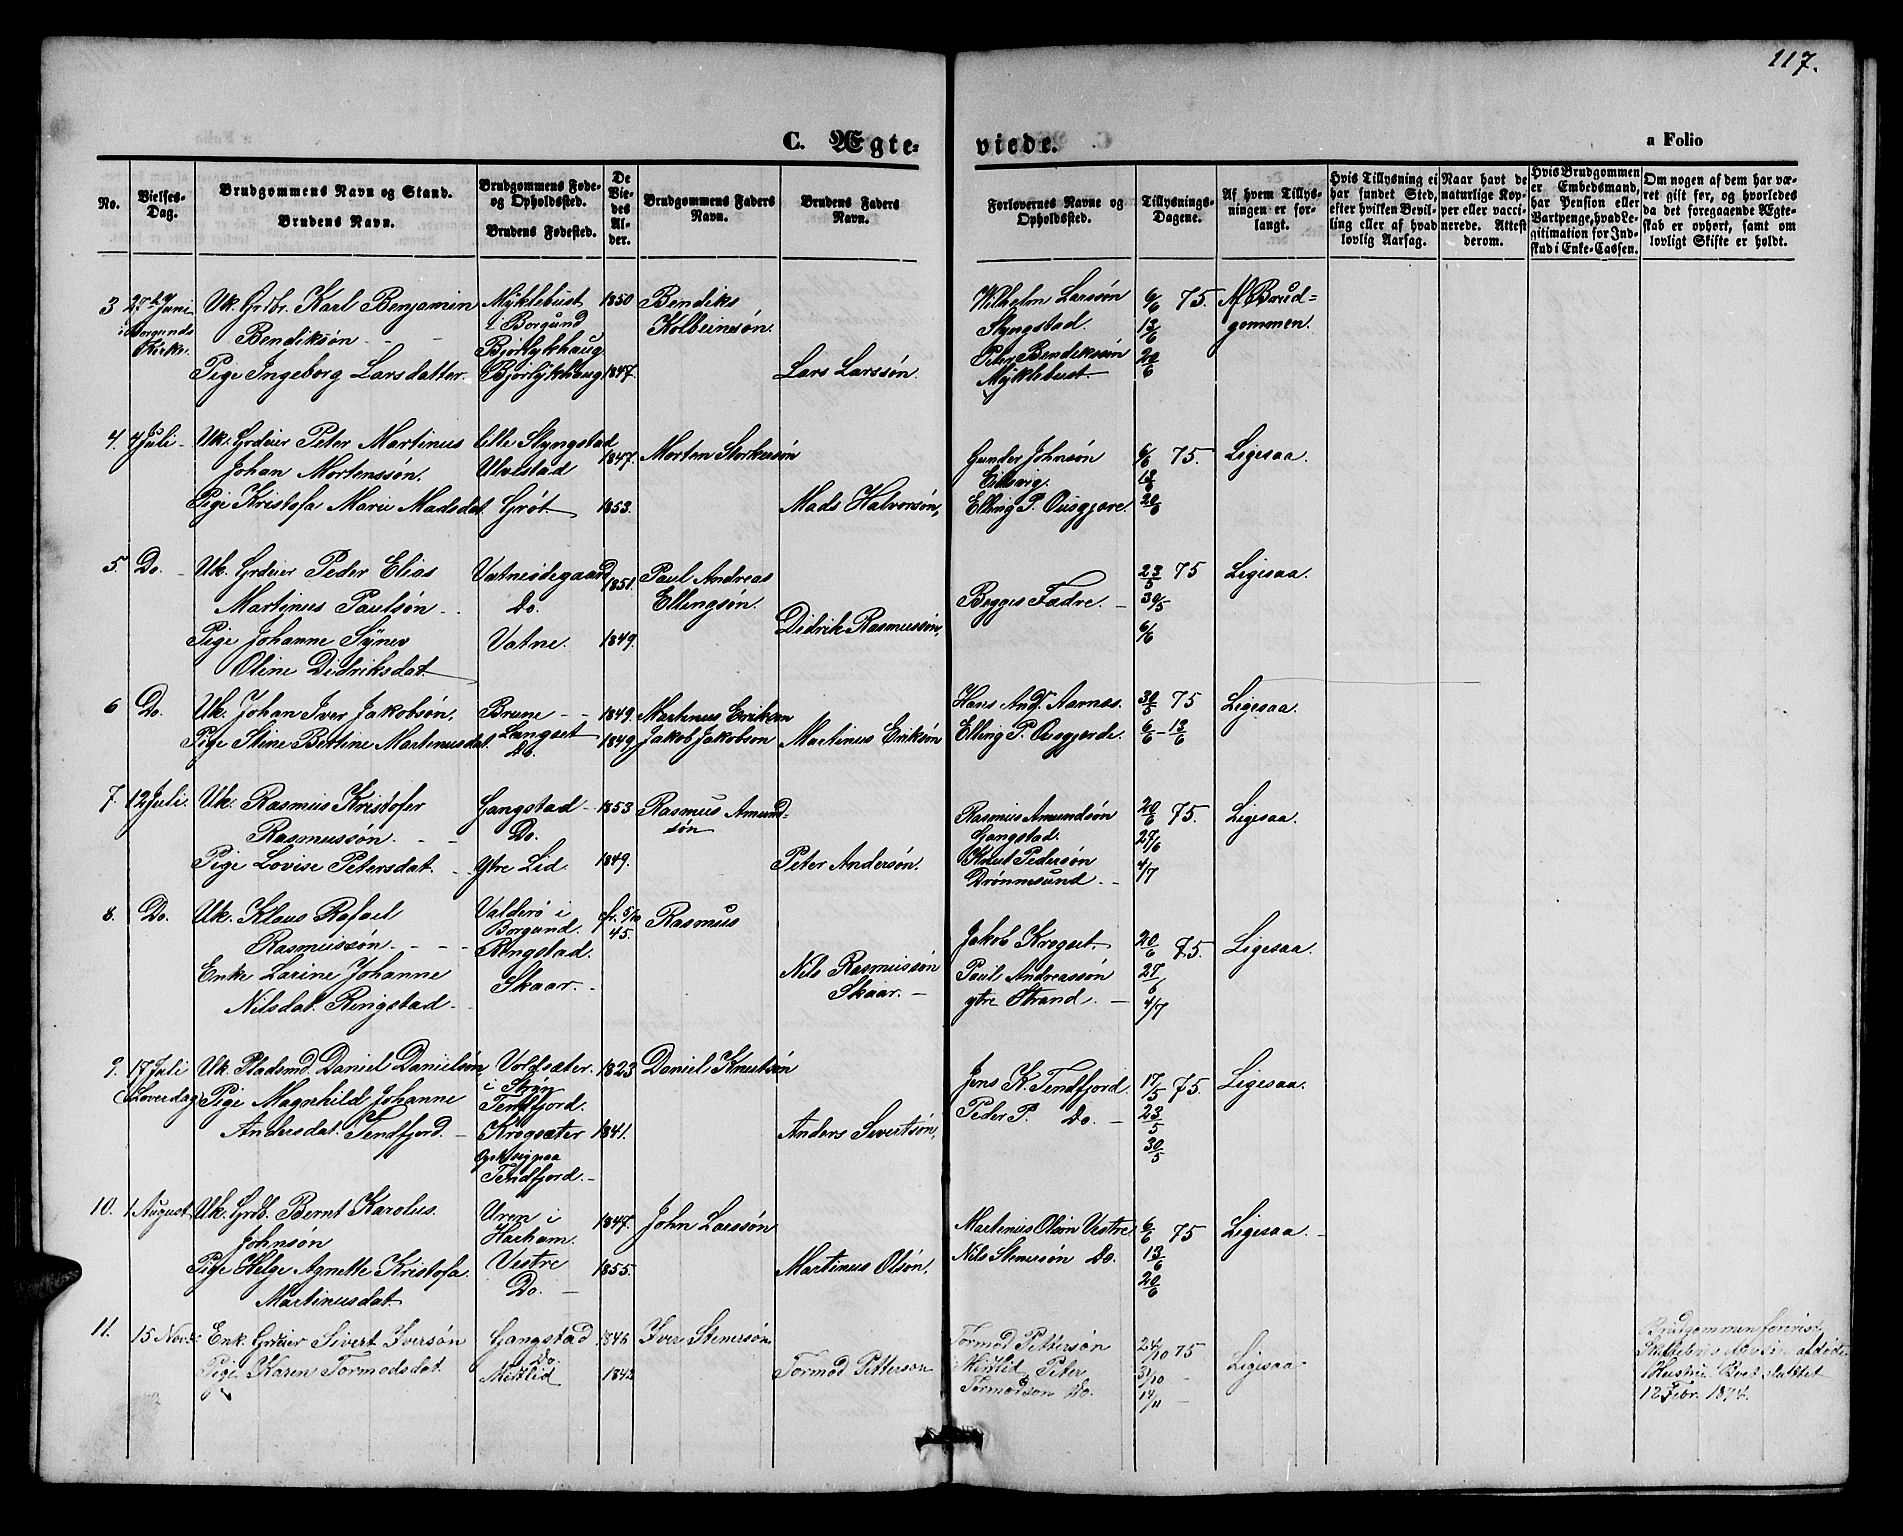 117.
C. Ægteviede.
a Folio
No.
Vielses-Dag.
Brudgommens Navn og Stand.
Brudens Navn.
Brudgommens Føde- og Opholdssted.
Brudens Fødested.
De Viedes Alder.
Brudgommens Faders Navn.
Brudens Faders Navn.
Forlovernes Navne og Opholdssted.
Tillysnings-Dagene.
Af hvem Tillysningen er forlangt.
Hvis Tillysning ei har fundet Sted, efter hvilken Bevilling eller af hvad lovlig Aarsag.
Naar havt de naturlige Kopper eller vaccinerede. Attest derom.
Hvis Brudgommen er Embedsmand, har Pension eller Vartpenge, hvad Legitimation for Indskud i Enke-Cassen.
Om nogen af dem har været gift før, og hvorledes da det foregaaende Ægteskab er ophørt, samt om lovligt Skifte er holdt.
3 27de Juni i Borgunds Kirke.
Uk. Grdbr. Karl Benjamin
Bendiksøn
Pige Ingeborg Larsdatter.
Myklebust
i Borgund
Bjørlykhaug
Bjørlykhaug
1850
1847.
Bendiks
Kolbeinsøn.
Lars Larssøn.
Wilhelm Larsøn
Slyngstad.
Peter Bendiksøn
Myklebust.
6/6 75.
13/6
20/6
Af Brud=
gommen.
4. 4 Juli
Uk. Grdeier Peter Martinus
Johan Mortenssøn.
Pige Kristofa Marie Madsdat.
Slyngstad
Ulvlstad
Grøt.
1847.
1853.
Morten Storkersøn
Mads Halvorsøn,
Gunder Johnsøn
Eidsvig.
Elling P. Ousgjære.
6/6 75.
13/6
20/6
Ligesaa.
5. Do.
Uk. Grdeier Peder Elias
Martinus Paulsøn
Pige Johanne Synev
Oline Didriksdat.
Vatneødegaard
Do.
Vatne.
1851.
1849.
Paul Andreas
Ellingsøn.
Didrik Rasmussøn,
Begges Fædre.
23/5 75
30/5
6/6
Ligesaa.
6 Do.
Uk. Johan Iver Jakobsøn.
Pige Stine Bettine Martinusdat.
Brune
Langset
Do.
1849.
1849
Martinus Eriksøn
Jakob Jakobsøn
Martinus Eriksøn
Hans And. Aarnæs.
Elling P. Ousgjerde.
30/5 75
6/6 - 13/6
Ligesaa.
7. 12 Juli.
Uk. Rasmus Kristofer
Rasmussøn.
Pige Lovise Petersdat.
Gangstad
Do.
Ytre Lid.
1853
1849.
Rasmus Amund=
søn
Peter Andersøn.
Rasmus Amundsøn
Gangstad.
Knut Pedersøn
Drønnesund.
20/6 75.
27/6
4/7
Ligesaa.
8. Do.
Uk. Klaus Rafael
Rasmussøn.
Enke Larine Johanne
Nilsdat. Ringstad
Valderø i
Borgund.
Ringstad.
Skaar.
fr. 5/10
45.
Rasmus
Nils Rasmussøn
Skaar.
Jakob Krogset.
Paul Andreassøn
ytre Strand.
20/6 75.
27/6
4/7
Ligesaa.
9. 17 Juli
(Løverdag)
Uk. Pladsmd. Daniel Danielsøn
Pige Magnhild Johanne
Andersdat. Tendfjord.
Voldsæter.
i Strøn
Tendfjord.
Krogsæter
Tendfjord.
1823
1841.
Daniel Knutsøn
Anders Sivertsøn,
Jens K. Tendfjord.
Peder P. Do.
17/5 75.
23/5
30/5
Ligesaa.
10. 1 August
Uk. Grdb. Bernt Karolus
Johnsøn
Pige Helge Agnette Kristofa
Martinusdat.
Uren i
Harham.
Vestre
Do.
1847.
1855.
John Larssøn
Martinus Olsøn.
Martinus Olsøn Vestre
Nils Stenersøn Do.
6/6 75
13/6
20/6
Ligesaa.
11. 15 Novb.
Enk. Grdeier Sivert Iversøn
Pige Karen Tormodsdat.
Gangstad
Do.
Midtlid
1846
1842
Iver Stenersøn
Tormod Petterson
Tormod Pettersøn
Midtlid, Peter
Tormodson Do.
24/10 75
31/10
14/11
Ligesaa
Brudgommen forevist
Skifteb. afdøde
Hustru Boet sluttet
12 Febr. 1874.